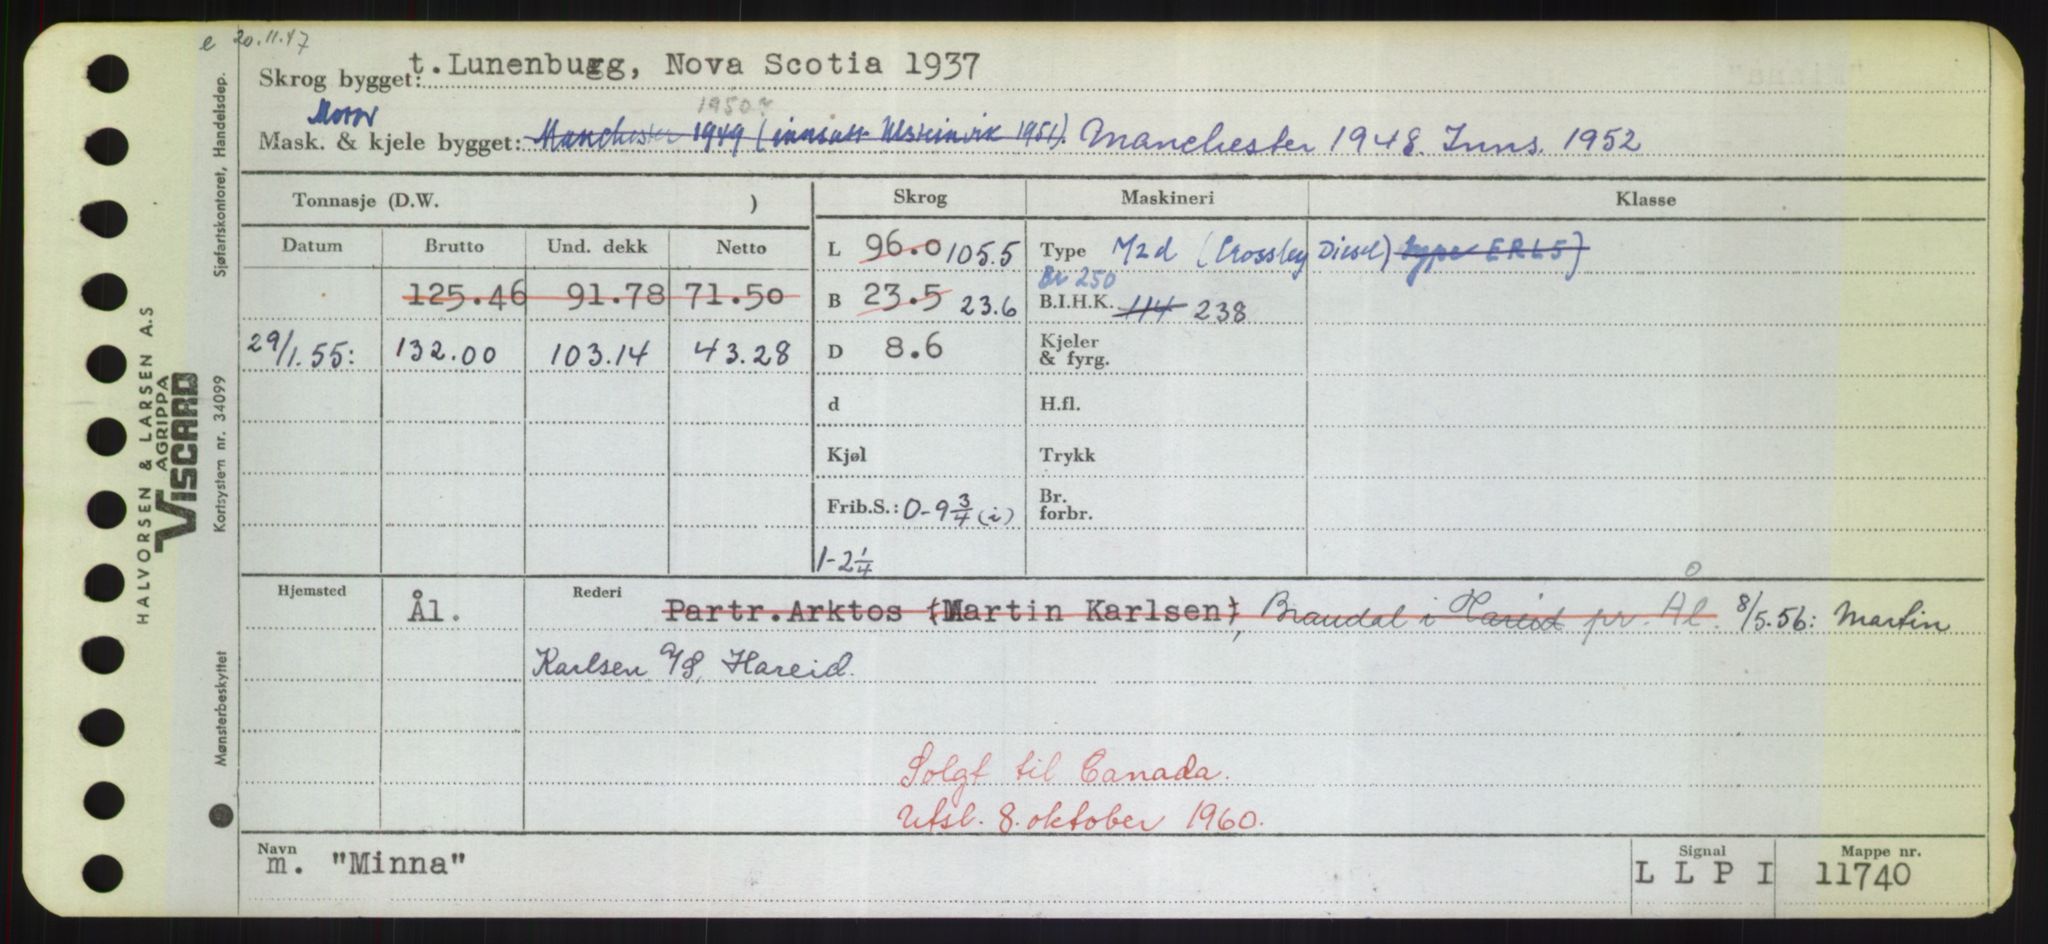 e 20.11.47
Skrog bygget: t. Lunenburg, Nova Scotia 1937
Motor 1950?
Mask. & kjele bygget: Manchester 1949 (innsatt Ulsteinvik 1951). Manchester 1948. Inns. 1952
Tonnasje (D.W. ) Skrog Maskineri Klasse
Datum Brutto Und. dekk Netto L 96.0 105.5 Type M2d (Crossley Diesel) type ERL5)
Br 250
125.46 91.78 71.50 B 23.5 23.6 B.I.H.K. 114 238
29/1.55: 132.00 103.14 43.28 D 8.6 Kjeler & fyrg.
d H.fl.
Kjøl Trykk
Frib.S.: 0-9 3/4 (i) Br. forbr.
1-2 1/4
Hjemsted Ål. Rederi Partr. Arktos (Martin Karlsen), Brandal i Hareid pr. Ål. 8/5.56: Martin
Karlsen A/S, Hareid.
Solgt til Canada.
Utsl. 8. oktober 1960.
Navn Signal Mappe nr.
m. "Minna" L L P I 11740
Sjøfartskontoret, Handelsdep.
Kortsystem nr. 34099
Mønsterbeskyttet
HALVORSEN & LARSEN A.S
AGRIPPA
VISCARD